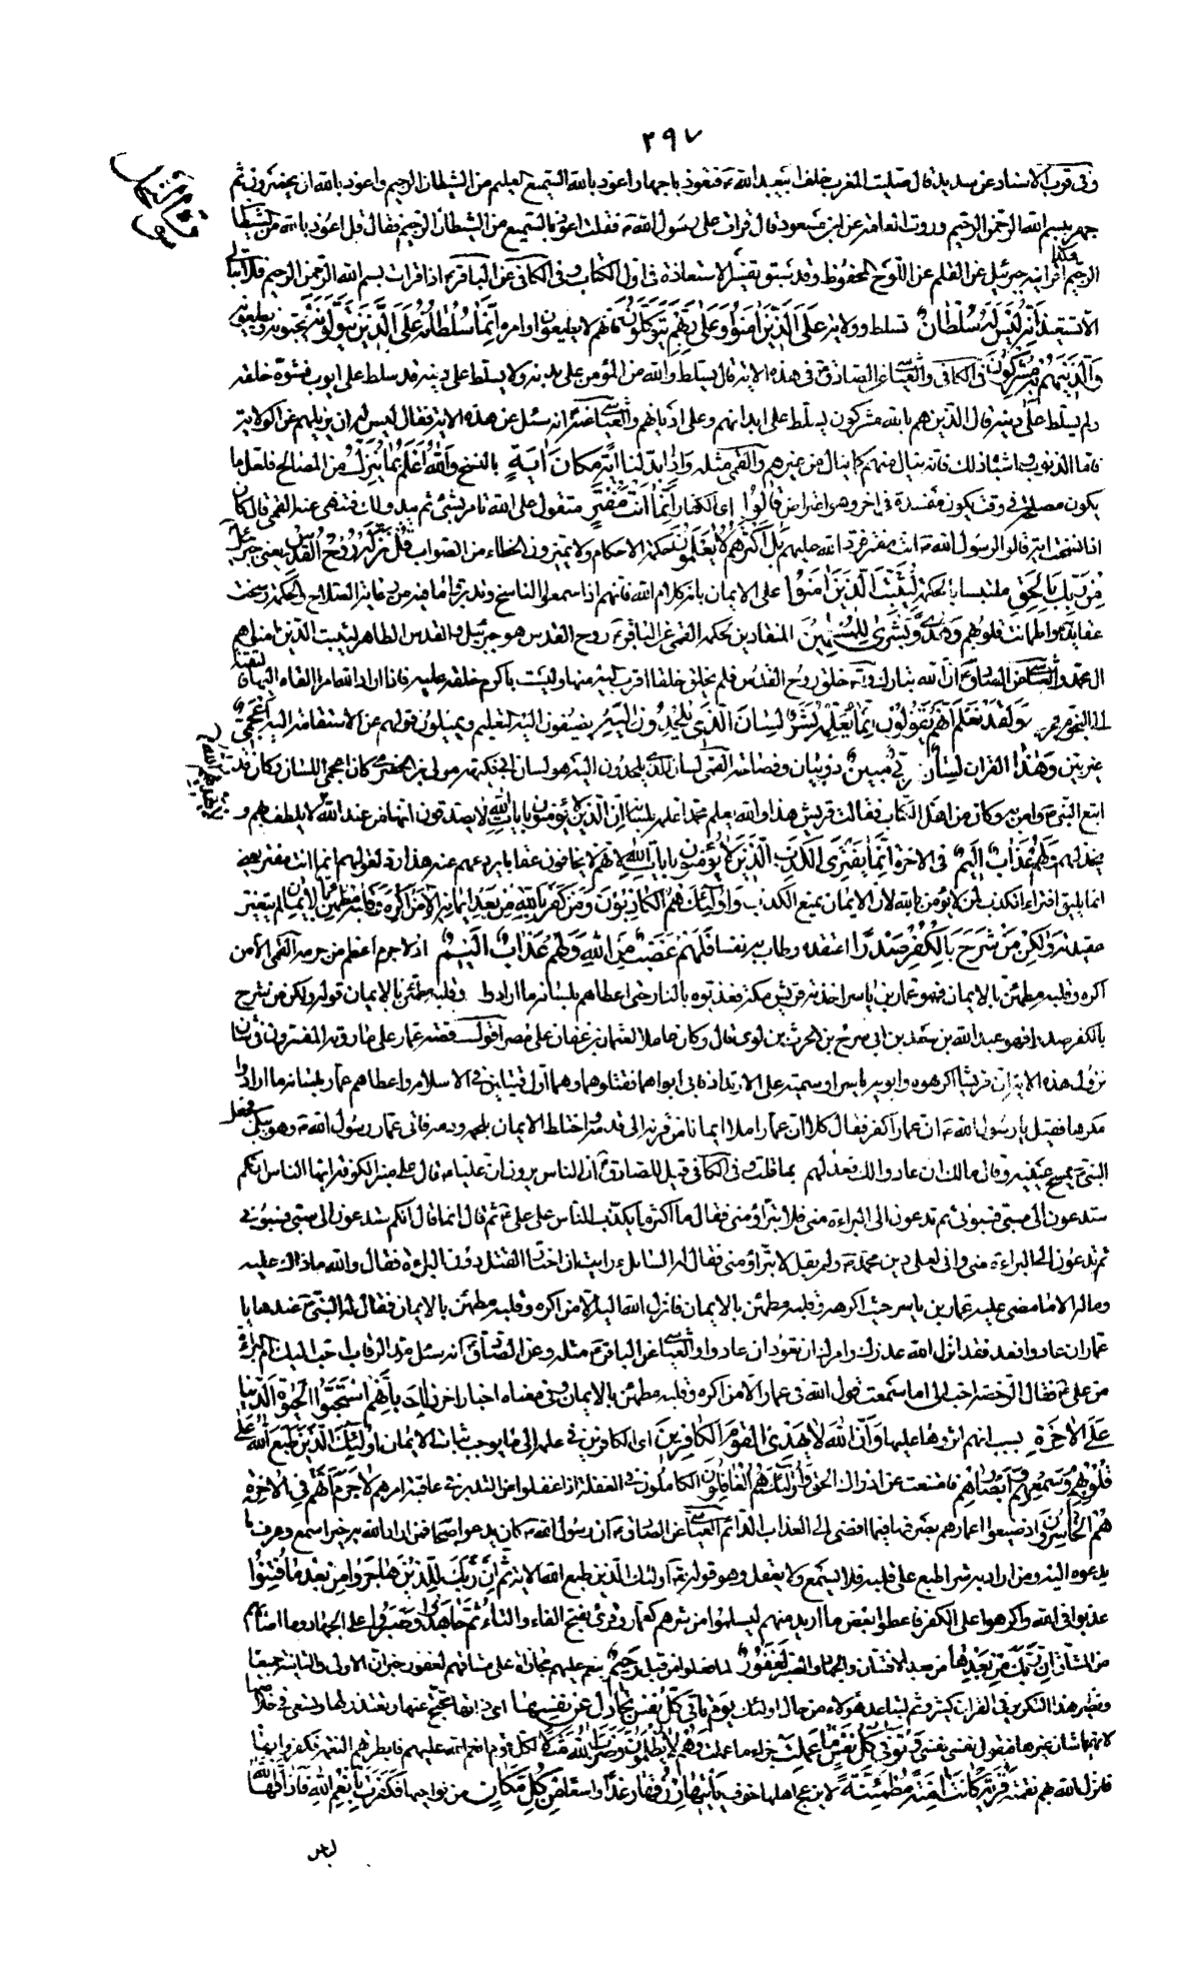 ٢٩٧
وفى قرب الاسناد عن سدير قال صليت المغرب خلف ابيعبد الله ع فتعوذ باجهار اعوذ بالله السميع العليم من الشيطان الرجيم واعوذ بالله ان يحضرون ثم
جهر ببسم الله الرحمن الرحيم وروت العامة عن ابن مسعود قال قرات على رسول الله ص فقلت اعوذ بالسميع من الشيطان الرجيم فقال قل اعوذ بالله من الشيطان
الرجيم هكذا اقرانيه جبرئيل عن القلم عن اللوح المحفوظ وقد سبق تفسير الاستعاذة فى اول الكتاب وفى الكافى عن الباقر ع اذا قرات بسم الله الرحمن الرحيم فلا تبالى
الا تستعيذ اِنَّهُ لَيْسَ لَهُ سُلْطَانٌ تسلط وولاية عَلَى الَّذِينَ امَنُوا وَعَلَى رَبِّهِمْ يَتَوَكَّلُونَ فانهم لا يطيعون اوامره اِنَّمَا سُلْطَانُهُ عَلَى الَّذِينَ يَتَوَلَّوْنَهُ يحبونه ويطيعونه
وَالَّذِينَ هُمْ بِهِ مُشْرِكُونَ فى الكافى والعياشى عن الصادق ع فى هذه الاية قال يسلط والله من المؤمن على بدنه ولا يسلط على دينه قد سلط على ايوب فشوه خلقه
ولم يسلط على دينه قال الذين هم بالله مشركون يسلط على ابدانهم وعلى اديانهم والعياشى عنه ع انه سئل عن هذه الاية فقال ليس له ان يزيلهم عن الولاية
فاما الذنوب واشباه ذلك فانه ينال منهم كما ينال من غيرهم والقمى مثله وَاِذَا بَدَّلْنَا ايَةً مَكَانَ ايَةٍ بالنسخ وَاللهُ اَعْلَمُ بِمَا يُنَزِّلُ من المصالح فلعل ما
يكون مصلحة فى وقت يكون مفسدة فى اخر وهو اعتراض قَالُوا اى الكفار اِنَّمَا اَنْتَ مُفْتَرٍ متقول على الله تامر بشئ ثم يبدو لك فتنهى عنه القمى قال كان
اذا نسخت اية قالوا لرسول الله ص انت مفتر فرد الله عليهم بَلْ اَكْثَرُهُمْ لَا يَعْلَمُونَ حكمة الاحكام ولا يميزون الخطاء من الصواب قُلْ نَزَّلَهُ رُوحُ الْقُدُسِ يعنى جبرئيل
مِنْ رَبِّكَ بِالْحَقِّ ملتبسا بالحكمة لِيُثَبِّتَ الَّذِينَ امَنُوا على الايمان بانه كلام الله فانهم اذا سمعوا الناسخ وتدبروا ما فيه من رعاية الصلاح والحكمة رسخت
عقايدهم واطمانت قلوبهم وَهُدًى وَبُشْرَى لِلْمُسْلِمِينَ المنقادين لحكمه القمى عن الباقر ع روح القدس هو جبرئيل والقدس الطاهر ليثبت الذين امنوا هم
ال محمد والعياشى عن الصادق ع ان الله تبارك وتعالى خلق روح القدس فلم يخلق خلقا اقرب اليه منها وليست باكرم خلقه عليه فاذا اراد الله امرا القاه اليها فالقته
الى النجوم فجرت وَلَقَدْ نَعْلَمُ اَنَّهُمْ يَقُولُونَ اِنَّمَا يُعَلِّمُهُ بَشَرٌ لِسَانُ الَّذِى يُلْحِدُونَ اِلَيْهِ يضيفون اليه التعليم ويميلون قولهم عن الاستقامة اليه اَعْجَمِىٌّ
غير بين وَهَذَا القران لِسَانٌ عَرَبِىٌّ مُبِينٌ ذو بيان وفصاحة القمى لسان الذى يلحدون اليه هو لسان ابى فكيهة مولى بنى الحضرمى كان اعجمى اللسان وكان قد
اتبع النبى ص وامن به وكان من اهل الكتاب فقالت قريش هذا والله يعلم محمدا علمه بلسانه اِنَّ الَّذِينَ لَا يُؤْمِنُونَ بِايَاتِ اللهِ لا يصدقون انها من عند الله لا يلطف بهم و
يخذلهم وَلَهُمْ عَذَابٌ اَلِيمٌ فى الاخرة اِنَّمَا يَفْتَرِى الْكَذِبَ الَّذِينَ لَا يُؤْمِنُونَ بِايَاتِ اللهِ لانهم لا يخافون عقابا يردعهم عنه هذا رد لقولهم انما انت مفتر يعنى
انما يليق افتراء الكذب بمن لا يؤمن بالله لان الايمان يمنع الكذب وَاُولَئِكَ هُمُ الْكَاذِبُونَ وَمَنْ كَفَرَ بِاللهِ مِنْ بَعْدِ ايمَانِهِ اِلَّا مَنْ اُكْرِهَ وَقَلْبُهُ مُطْمَئِنٌّ بِالْايمَانِ لم يتغير
عقيدته وَلَكِنْ مَنْ شَرَحَ بِالْكُفْرِ صَدْرًا اعتقده وطاب به نفسا فَعَلَيْهِمْ غَضَبٌ مِنَ اللهِ وَلَهُمْ عَذَابٌ اَلِيمٌ اذ لا جرم اعظم من جرمه القمى الا من
اكره وقلبه مطمئن بالايمان فهو عمار بن ياسر اخذته قريش بمكة فعذبوه بالنار حتى اعطاهم بلسانه ما ارادوا وقلبه مطمئن بالايمان قوله ولكن من شرح
بالكفر صدرا فهو عبد الله بن سعد بن ابى سرح بن الحرث من بنى لوى قال وكان عاملا لعثمان بن عفان على مصر اقول قصة عمار على ما روته المفسرون فى شان
نزول هذه الاية ان قريشا اكرهوه وابويه ياسرا وسمية على الارتداد فابى ابواهما فقتلوهما وهما اول قتيلين فى الاسلام واعطاهم عمار بلسانه ما ارادوا
مكرها فقيل يا رسول الله ص ان عمارا كفر فقال كلا ان عمارا ملا ايمانا من قرنه الى قدمه واختلط الايمان بلحمه ودمه فاتى عمار رسول الله ص وهو يبكى فجعل
النبى ص يمسح عينيه وقال ما لك ان عادوا لك فعد لهم بما قلت وفى الكافى قيل للصادق ع ان الناس يروون ان عليا ع قال على منبر الكوفة ايها الناس انكم
ستدعون الى سبى فسبونى ثم تدعون الى البراءة منى فلا تبرؤا منى فقال ما اكثر ما يكذب الناس على على ع ثم قال انما قال انكم ستدعون الى سبى فسبونى
ثم تدعون الى البراءة منى وانى لعلى دين محمد ص ولم يقل لا تبرؤا منى فقال له السائل ارايت ان اختار القتل دون البراءة فقال والله ما ذلك عليه
وما له الا ما مضى عليه عمار بن ياسر حيث اكرهه وقلبه مطمئن بالايمان فانزل الله فيه الا من اكره وقلبه مطمئن بالايمان فقال له النبى ص عندها يا
عمار ان عادوا فعد فقد انزل الله عذرك وامرك ان تعود ان عادوا والعياشى عن الباقر ع مثله وعن الصادق ع انه سئل مد الرقاب احب اليك ام البراءة
من على ع فقال الرخصة احب الى اما سمعت قول الله فى عمار الا من اكره وقلبه مطمئن بالايمان وفى معناه اخبار اخر ذَلِكَ بِاَنَّهُمُ اسْتَحَبُّوا الْحَيوةَ الدُّنْيَا
عَلَى الْاخِرَةِ بسبب انهم اثروها عليها وَاَنَّ اللهَ لَا يَهْدِى الْقَوْمَ الْكَافِرِينَ اى الكافرين فى علمه الى ما يوجب ثبات الايمان اُولَئِكَ الَّذِينَ طَبَعَ اللهُ عَلَى
قُلُوبِهِمْ وَسَمْعِهِمْ وَاَبْصَارِهِمْ فامتنعت عن ادراك الحق وَاُولَئِكَ هُمُ الْغَافِلُونَ الكاملون فى الغفلة اذ اغفلوا عن التدبر فى عاقبة امرهم لَا جَرَمَ اَنَّهُمْ فِى الْاخِرَةِ
هُمُ الْخَاسِرُونَ اذ ضيعوا اعمارهم بصرفها فيما افضى الى العذاب الدائم العياشى عن الصادق ع ان رسول الله ص كان يدعو اصحابه فمن اراد الله به خيرا سمع وعرف ما
يدعوه اليه ومن اراد به شرا طبع على قلبه فلا يسمع ولا يعقل وهو قوله تع اولئك الذين طبع الله الاية ثُمَّ اِنَّ رَبَّكَ لِلَّذِينَ هَاجَرُوا مِنْ بَعْدِ مَا فُتِنُوا
عذبوا فى الله واكرهوا على الكفر فاعطوا بعض ما اريد منهم ليسلموا من شرهم كعمار وقرئ بفتح الفاء والتاء ثُمَّ جَاهَدُوا وَصَبَرُوا على الجهاد وما اصابهم
من المشاق اِنَّ رَبَّكَ مِنْ بَعْدِهَا من بعد الافتتان والجهاد والصبر لَغَفُورٌ لما فعلوا من قبل رَحِيمٌ ينعم عليهم مجازاة على مشاقهم لغفور خبر ان الاولى والثانية جميعا
ونظير هذا التكرير فى القران كثير وثم لتباعد هؤلاء من حال اولئك يَوْمَ تَاْتِى كُلُّ نَفْسٍ تُجَادِلُ عَنْ نَفْسِهَا اى ذاتها تحتج عنها وتعتذر لها وتسعى فى خلاصها
لا يهمها شان غيرها فتقول نفسى نفسى وَتُوَفَّى كُلُّ نَفْسٍ مَا عَمِلَتْ جزاء ما عملت وَهُمْ لَا يُظْلَمُونَ وَضَرَبَ اللهُ مَثَلًا لكل قوم انعم الله عليهم فابطرهم النعمة فكفروا بها
فانزل الله بهم نقمته قَرْيَةً كَانَتْ امِنَةً مُطْمَئِنَّةً لا يزعج اهلها خوف يَاْتِيهَا رِزْقُهَا رَغَدًا واسعا مِنْ كُلِّ مَكَانٍ من نواحيها فَكَفَرَتْ بِاَنْعُمِ اللهِ فَاَذَاقَهَا اللهُ
لباس